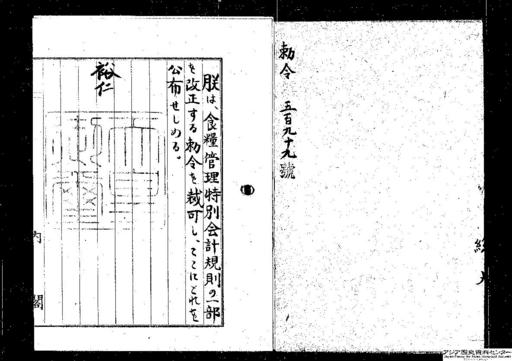 勅令 五百九十九號
朕は、食糧管理特別会計規則の一部
を改正する勅令を裁可し、ここにこれを
公布せしめる。
裕仁
内閣
アジア歴史資料センター